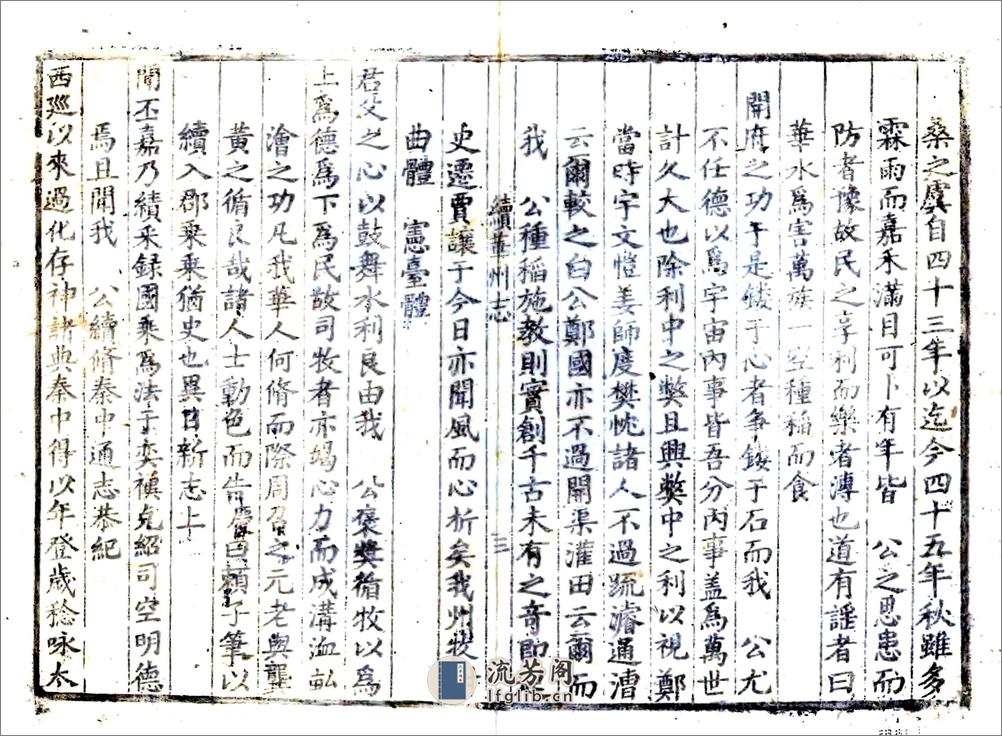 桑之虞自四十三年以迄今四十五年秋雖多
霖雨而嘉禾滿目可卜有年皆　公之思患而
防者豫故民之享利而樂者溥也道有謠者曰
華水爲害萬族一空種稻而食
開府之功于是鏤于心者爭鏤于石而我　公尤
不任德以爲宇宙內事皆吾分內事盖爲萬世
計久大也除利中之獘且興獘中之利以視鄭
當時宇文愷姜師度樊忱諸人不過疏濬通漕
云爾較之白公鄭國亦不過開渠灌田云爾而
我　公種稻施教則實創千古未有之奇即
續華州志　三
史遷賈讓于今日亦聞風而心折矣我州牧
曲體　憲臺體
君父之心以鼓舞水利良由我　公褒獎循牧以爲
上爲德爲下爲民故司牧者亦竭心力而成溝洫畝
澮之功凡我華人何脩而際周召之元老與龔
黃之循良哉諸人士動色而告 曰頼子筆以
續入郡乘乘猶史也異日新志上
聞丕嘉乃績采録國乘爲法于奕禩克紹司空明德
焉且聞我　公續脩秦中通志恭紀
西廵以來過化存神諸典秦中得以年登歲稔咏太
流芳阁
lfglib.cn